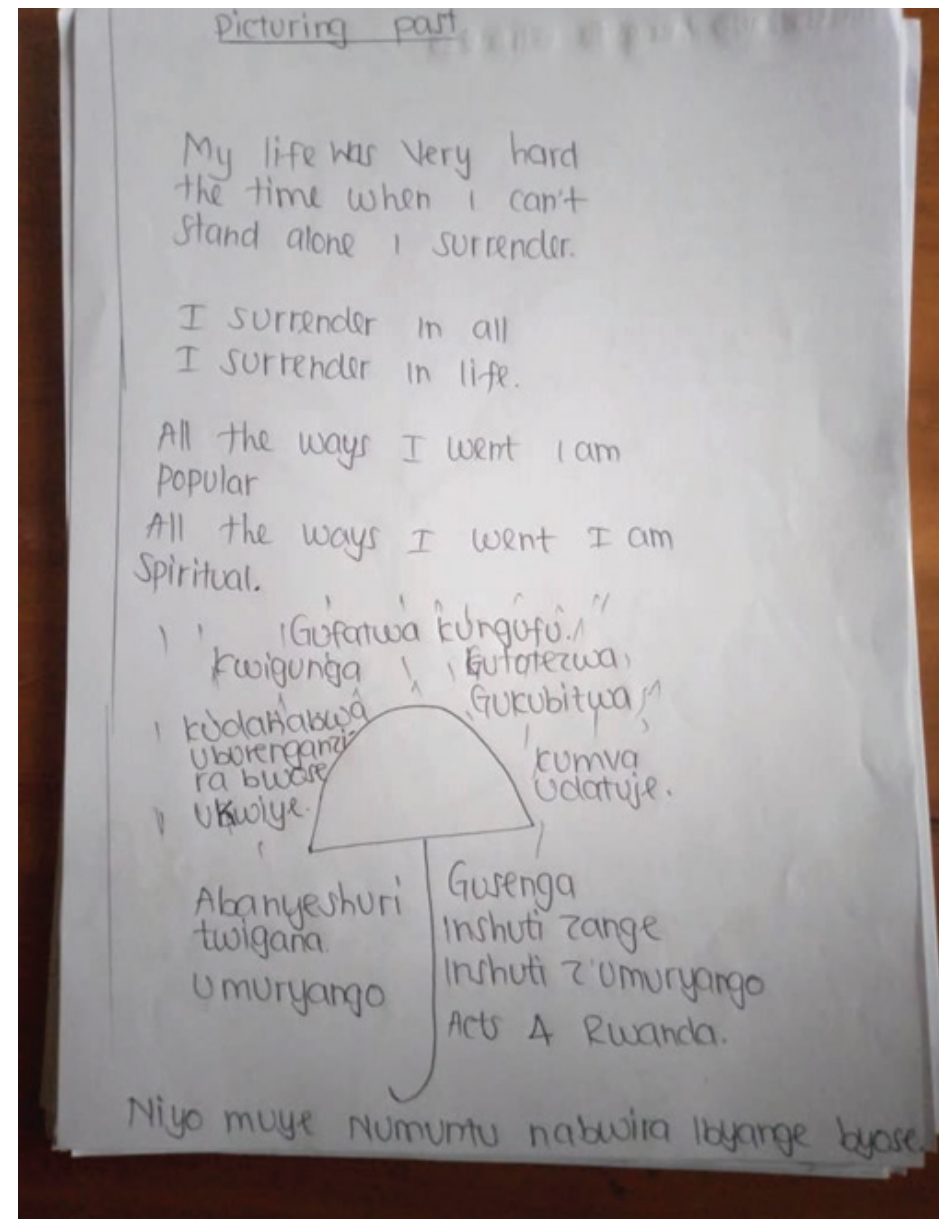 Picturing past
My life was Very hard
the time when I can't
Stand alone I surrender.
I surrender in all
I surrender in life.
All the ways I went I am
popular
All the ways I went I am
Spiritual.
Gufatwa kungufu.
Kwigunga
Gutotezwa
Gukubitwa
kudahabwa
uburenganzi
ra bwose
ukwiye.
kumva
udatuje.
Abanyeshuri
twigana.
Umuryango
Gusenga
Inshuti zange
Inshuti z'Umuryango
Acts 4 Rwanda.
Niyo muye Numuntu nabwira Ibyange byose